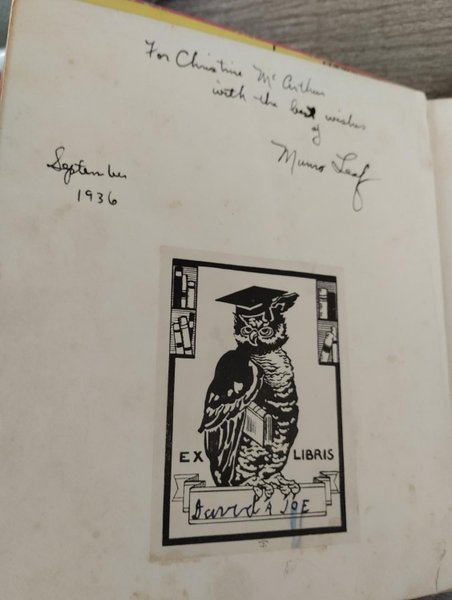 For Christine McArthur
with the best wishes
of
Munro Leaf
September
1936
EX LIBRIS
David A JOE